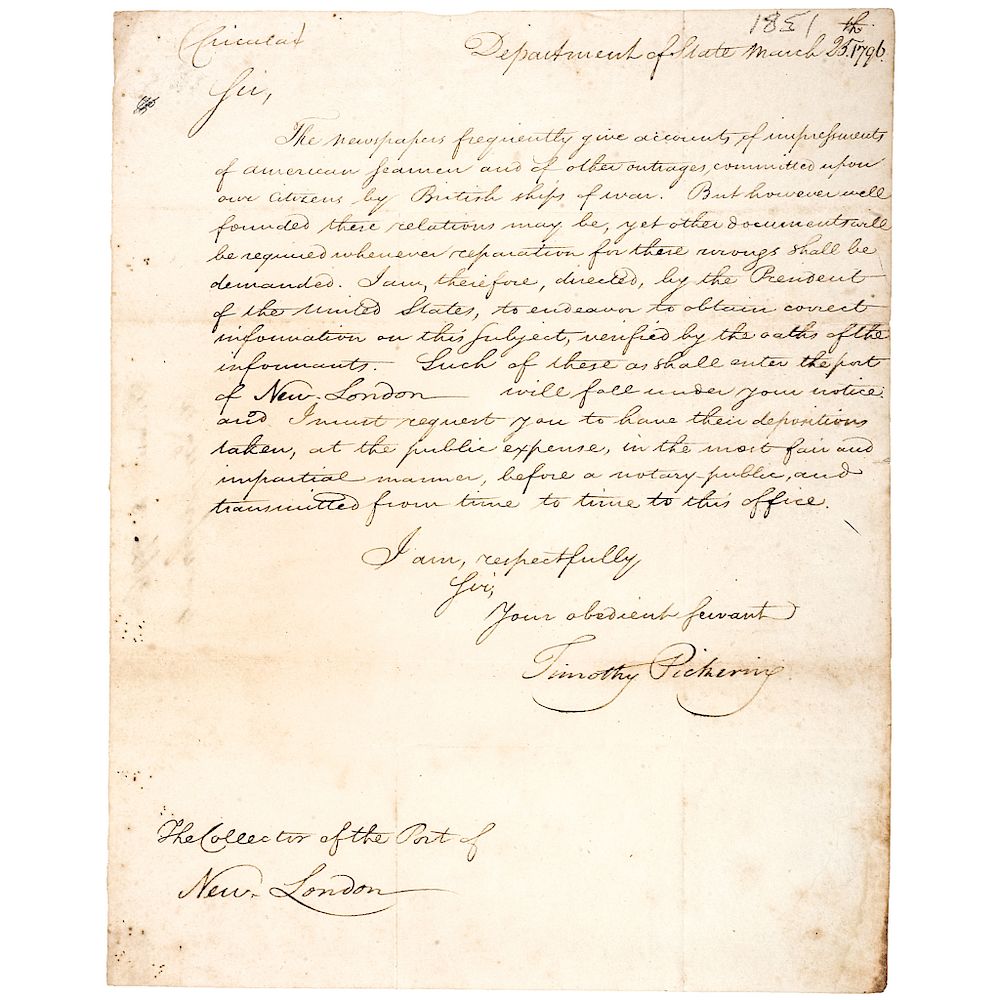 1851
Circular
Department of State March 25th. 1796.
Sir,
The newspapers frequently give accounts of impressments
of american seamen and of other outrages, committed upon
our citizens by British ships of war. But however well
founded these relations may be, yet other documents will
be required whenever reparation for these wrongs shall be
demanded. I am, therefore, directed, by the President
of the United States, to endeavor to obtain correct
information on this subject, verified by the oaths of the
informants. Such of these as shall enter the port
of New-London will fall under your notice.
and I must request you to have their depositions
taken, at the public expense, in the most fair and
impartial manner, before a notary public, and
transmitted from time to time to this office.
I am, respectfully
Sir,
Your obedient servant
Timothy Pickering
The Collector of the Port of
New-London